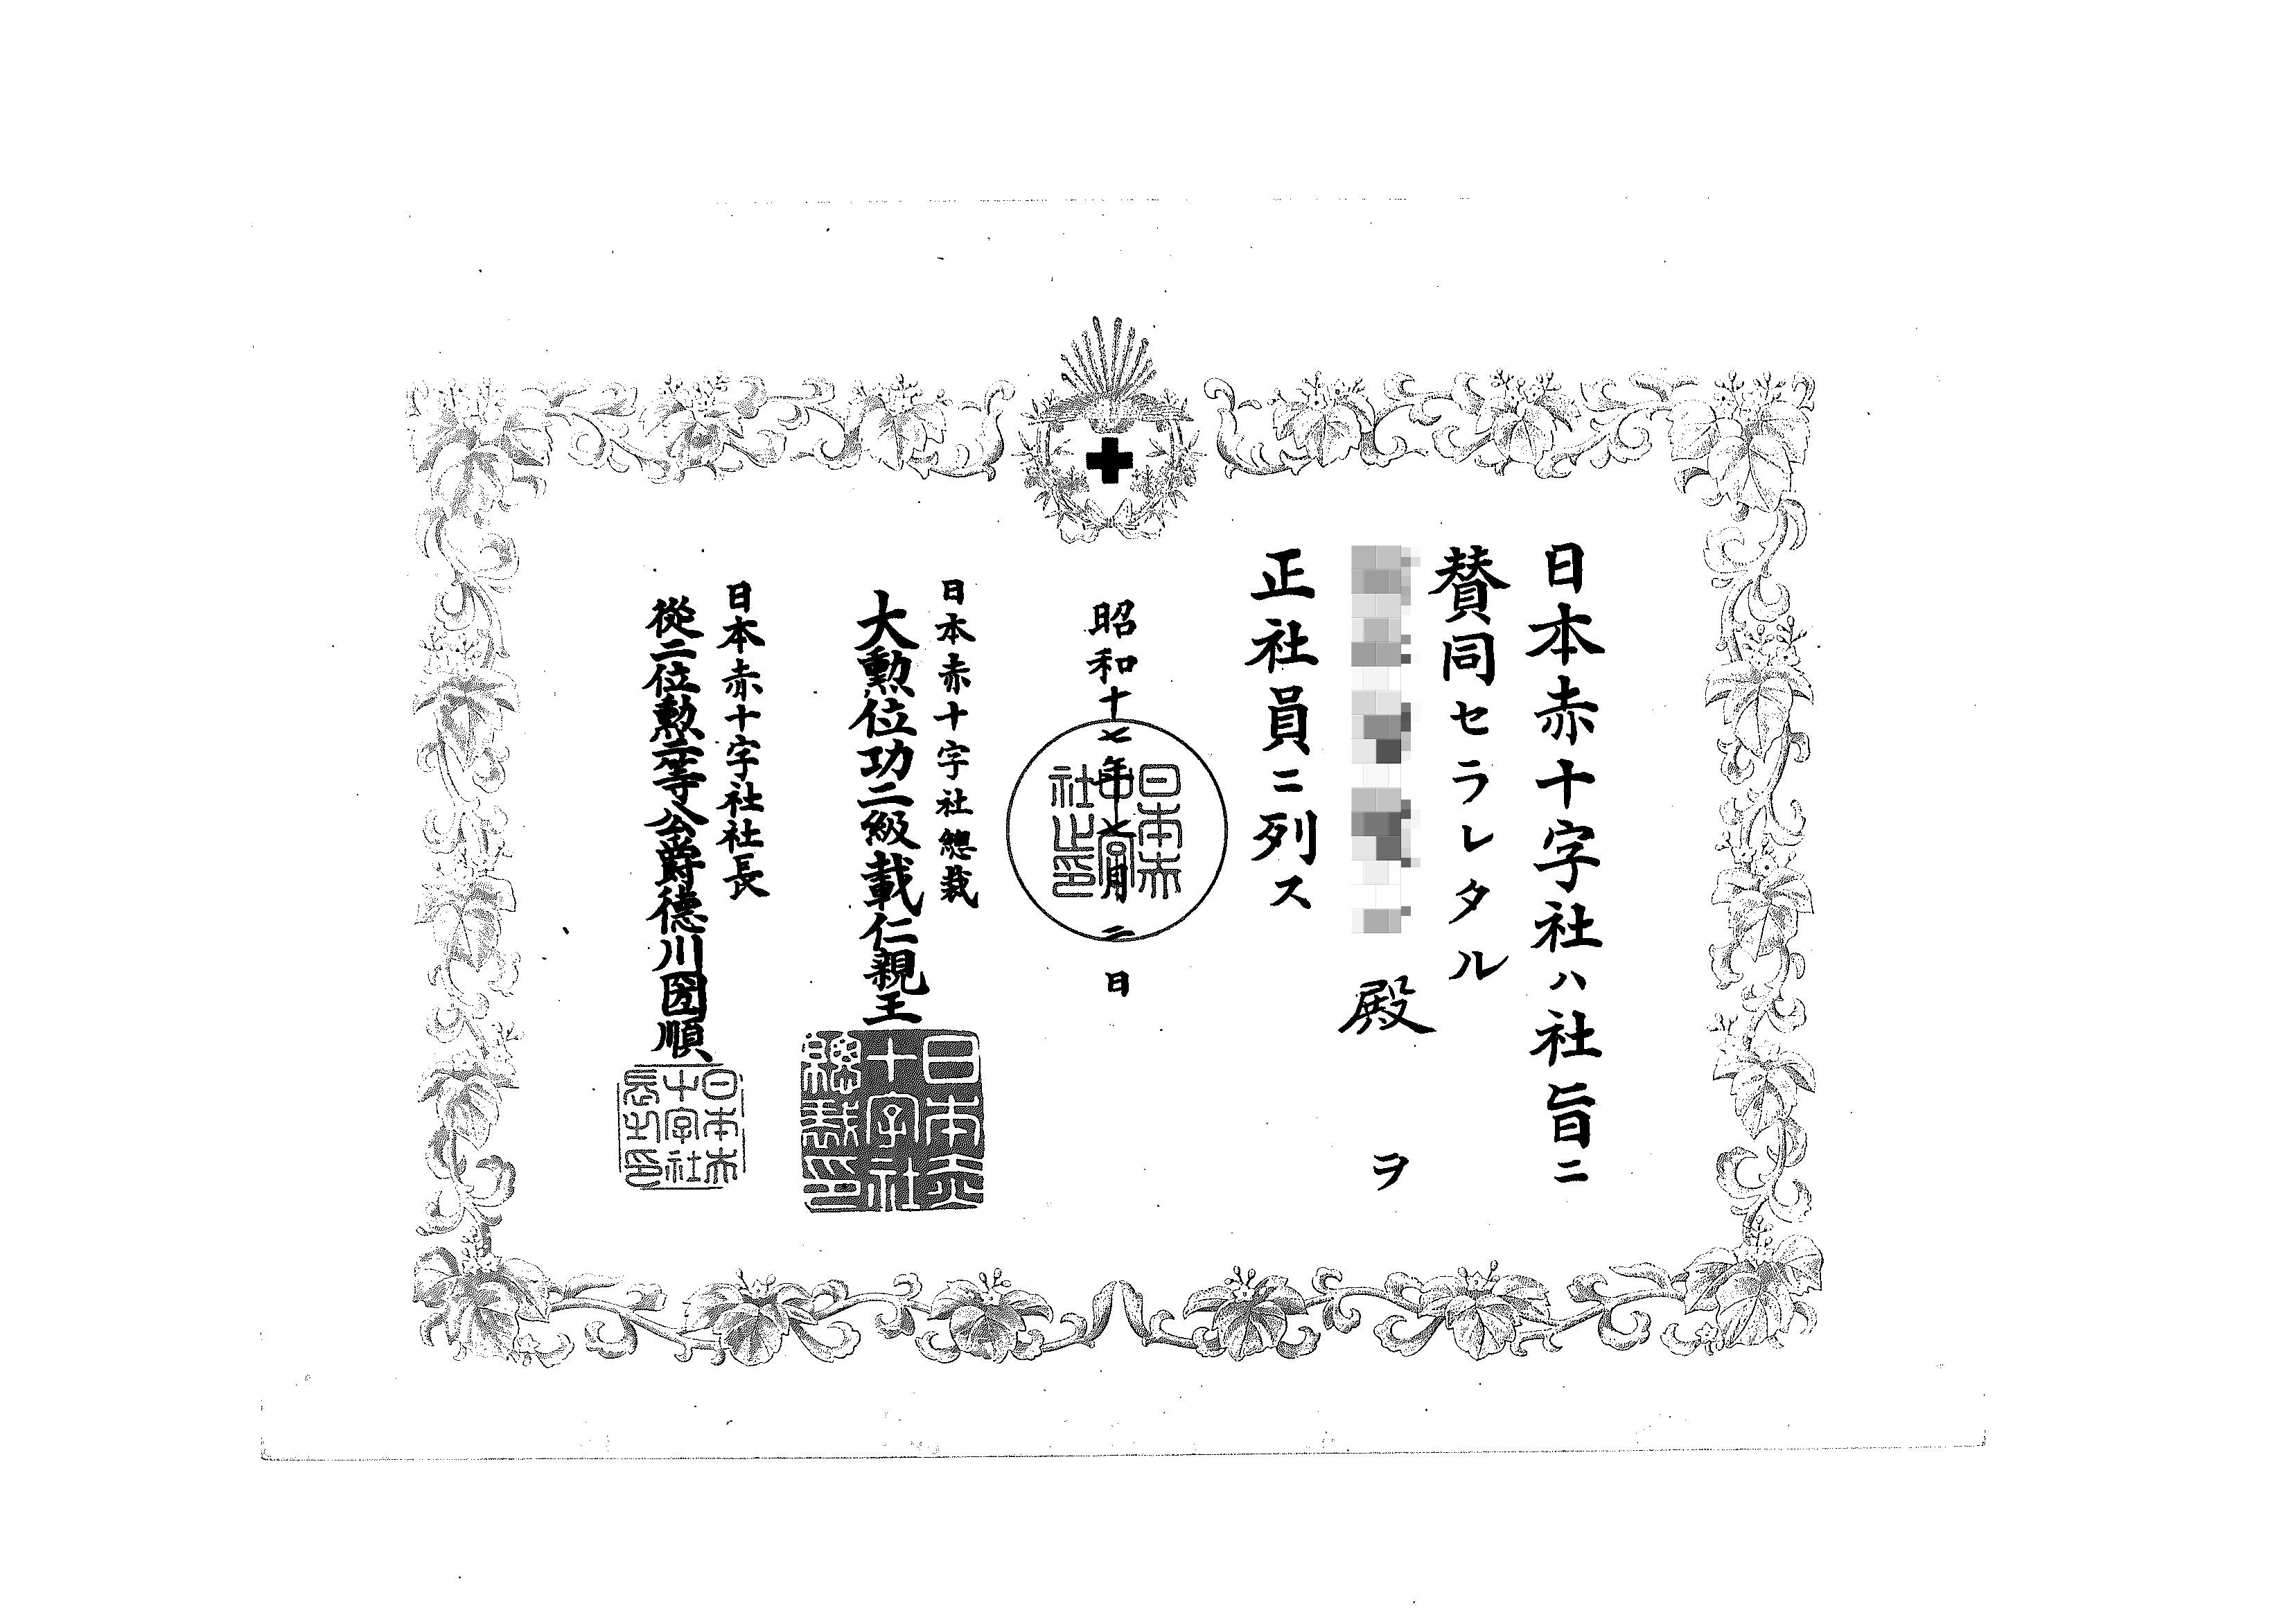 日本赤十字社ハ社旨ニ
賛同セラレタル
殿 ヲ
正社員ニ列ス
昭和十七年七月二日
日本赤十字社總裁
大勲位功二級載仁親王
日本赤十字社社長
從二位勲二等公爵德川圀順
日本赤十字社之印
日本赤十字社總裁印
日本赤十字社長之印